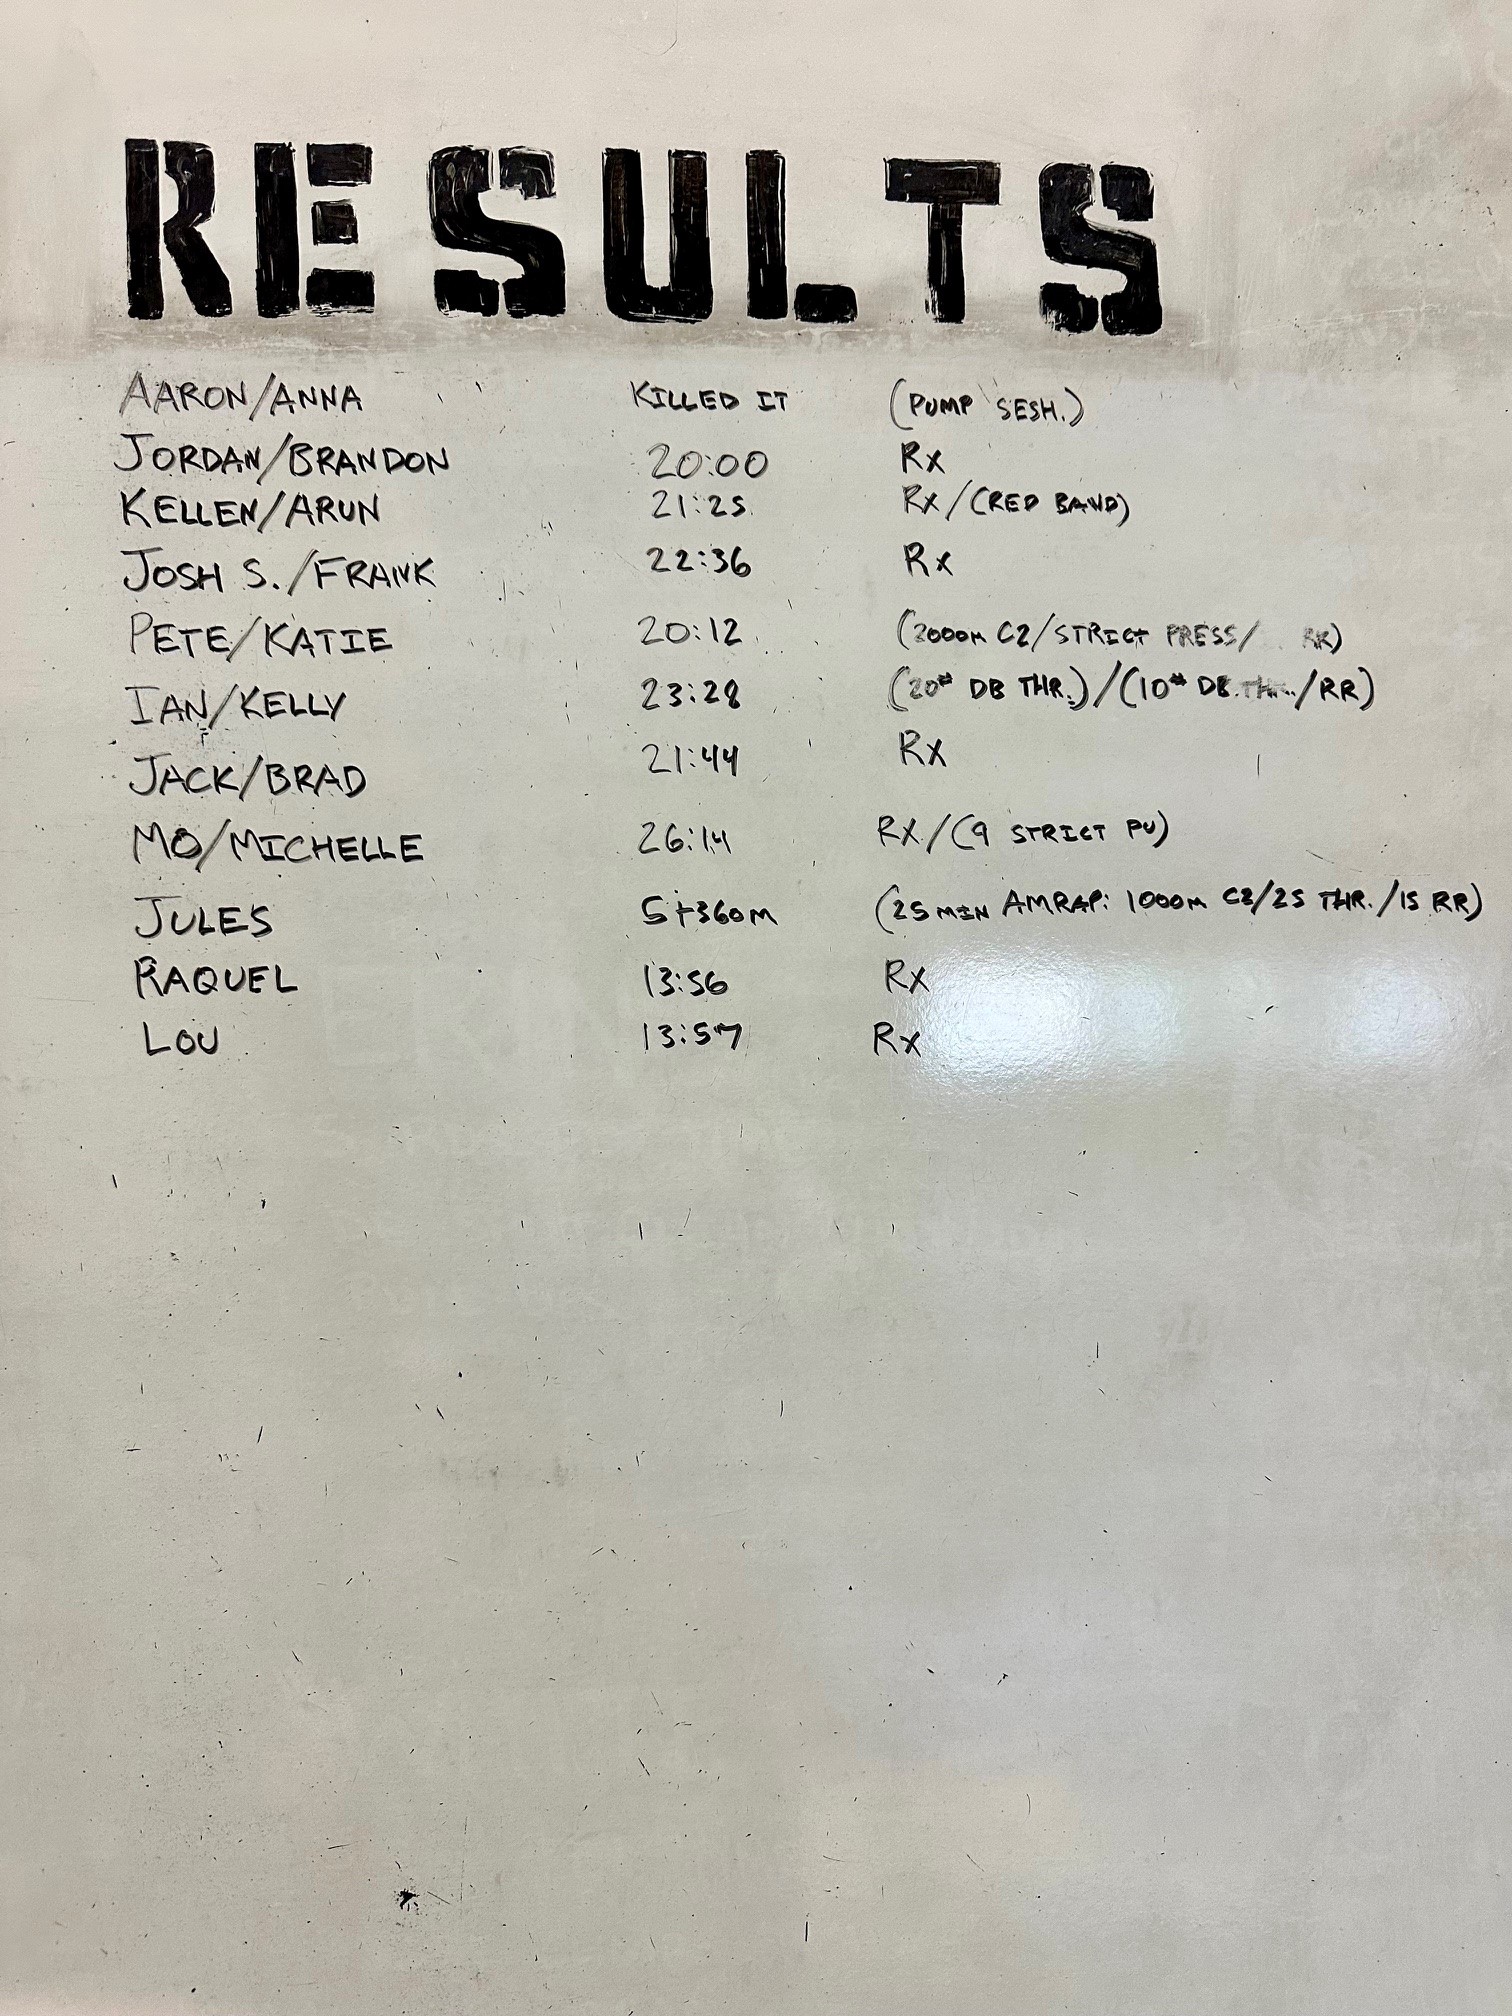 RESULTS
AARON/ANNA KILLED IT (PUMP SESH.)
JORDAN/BRANDON 20:00 Rx
KELLEN/ARUN 21:25 Rx/(RED BAND)
JOSH S./FRANK 22:36 Rx
PETE/KATIE 20:12 (2000m C2/STRICT PRESS/ RR)
IAN/KELLY 23:28 (20# DB THR.)/(10# DB THR./RR)
JACK/BRAD 21:44 Rx
MO/MICHELLE 26:14 RX/(9 STRICT PU)
JULES 5+360m (25 MIN AMRAP: 1000m C2/25 THR./15 RR)
RAQUEL 13:56 Rx
LOU 13:57 Rx